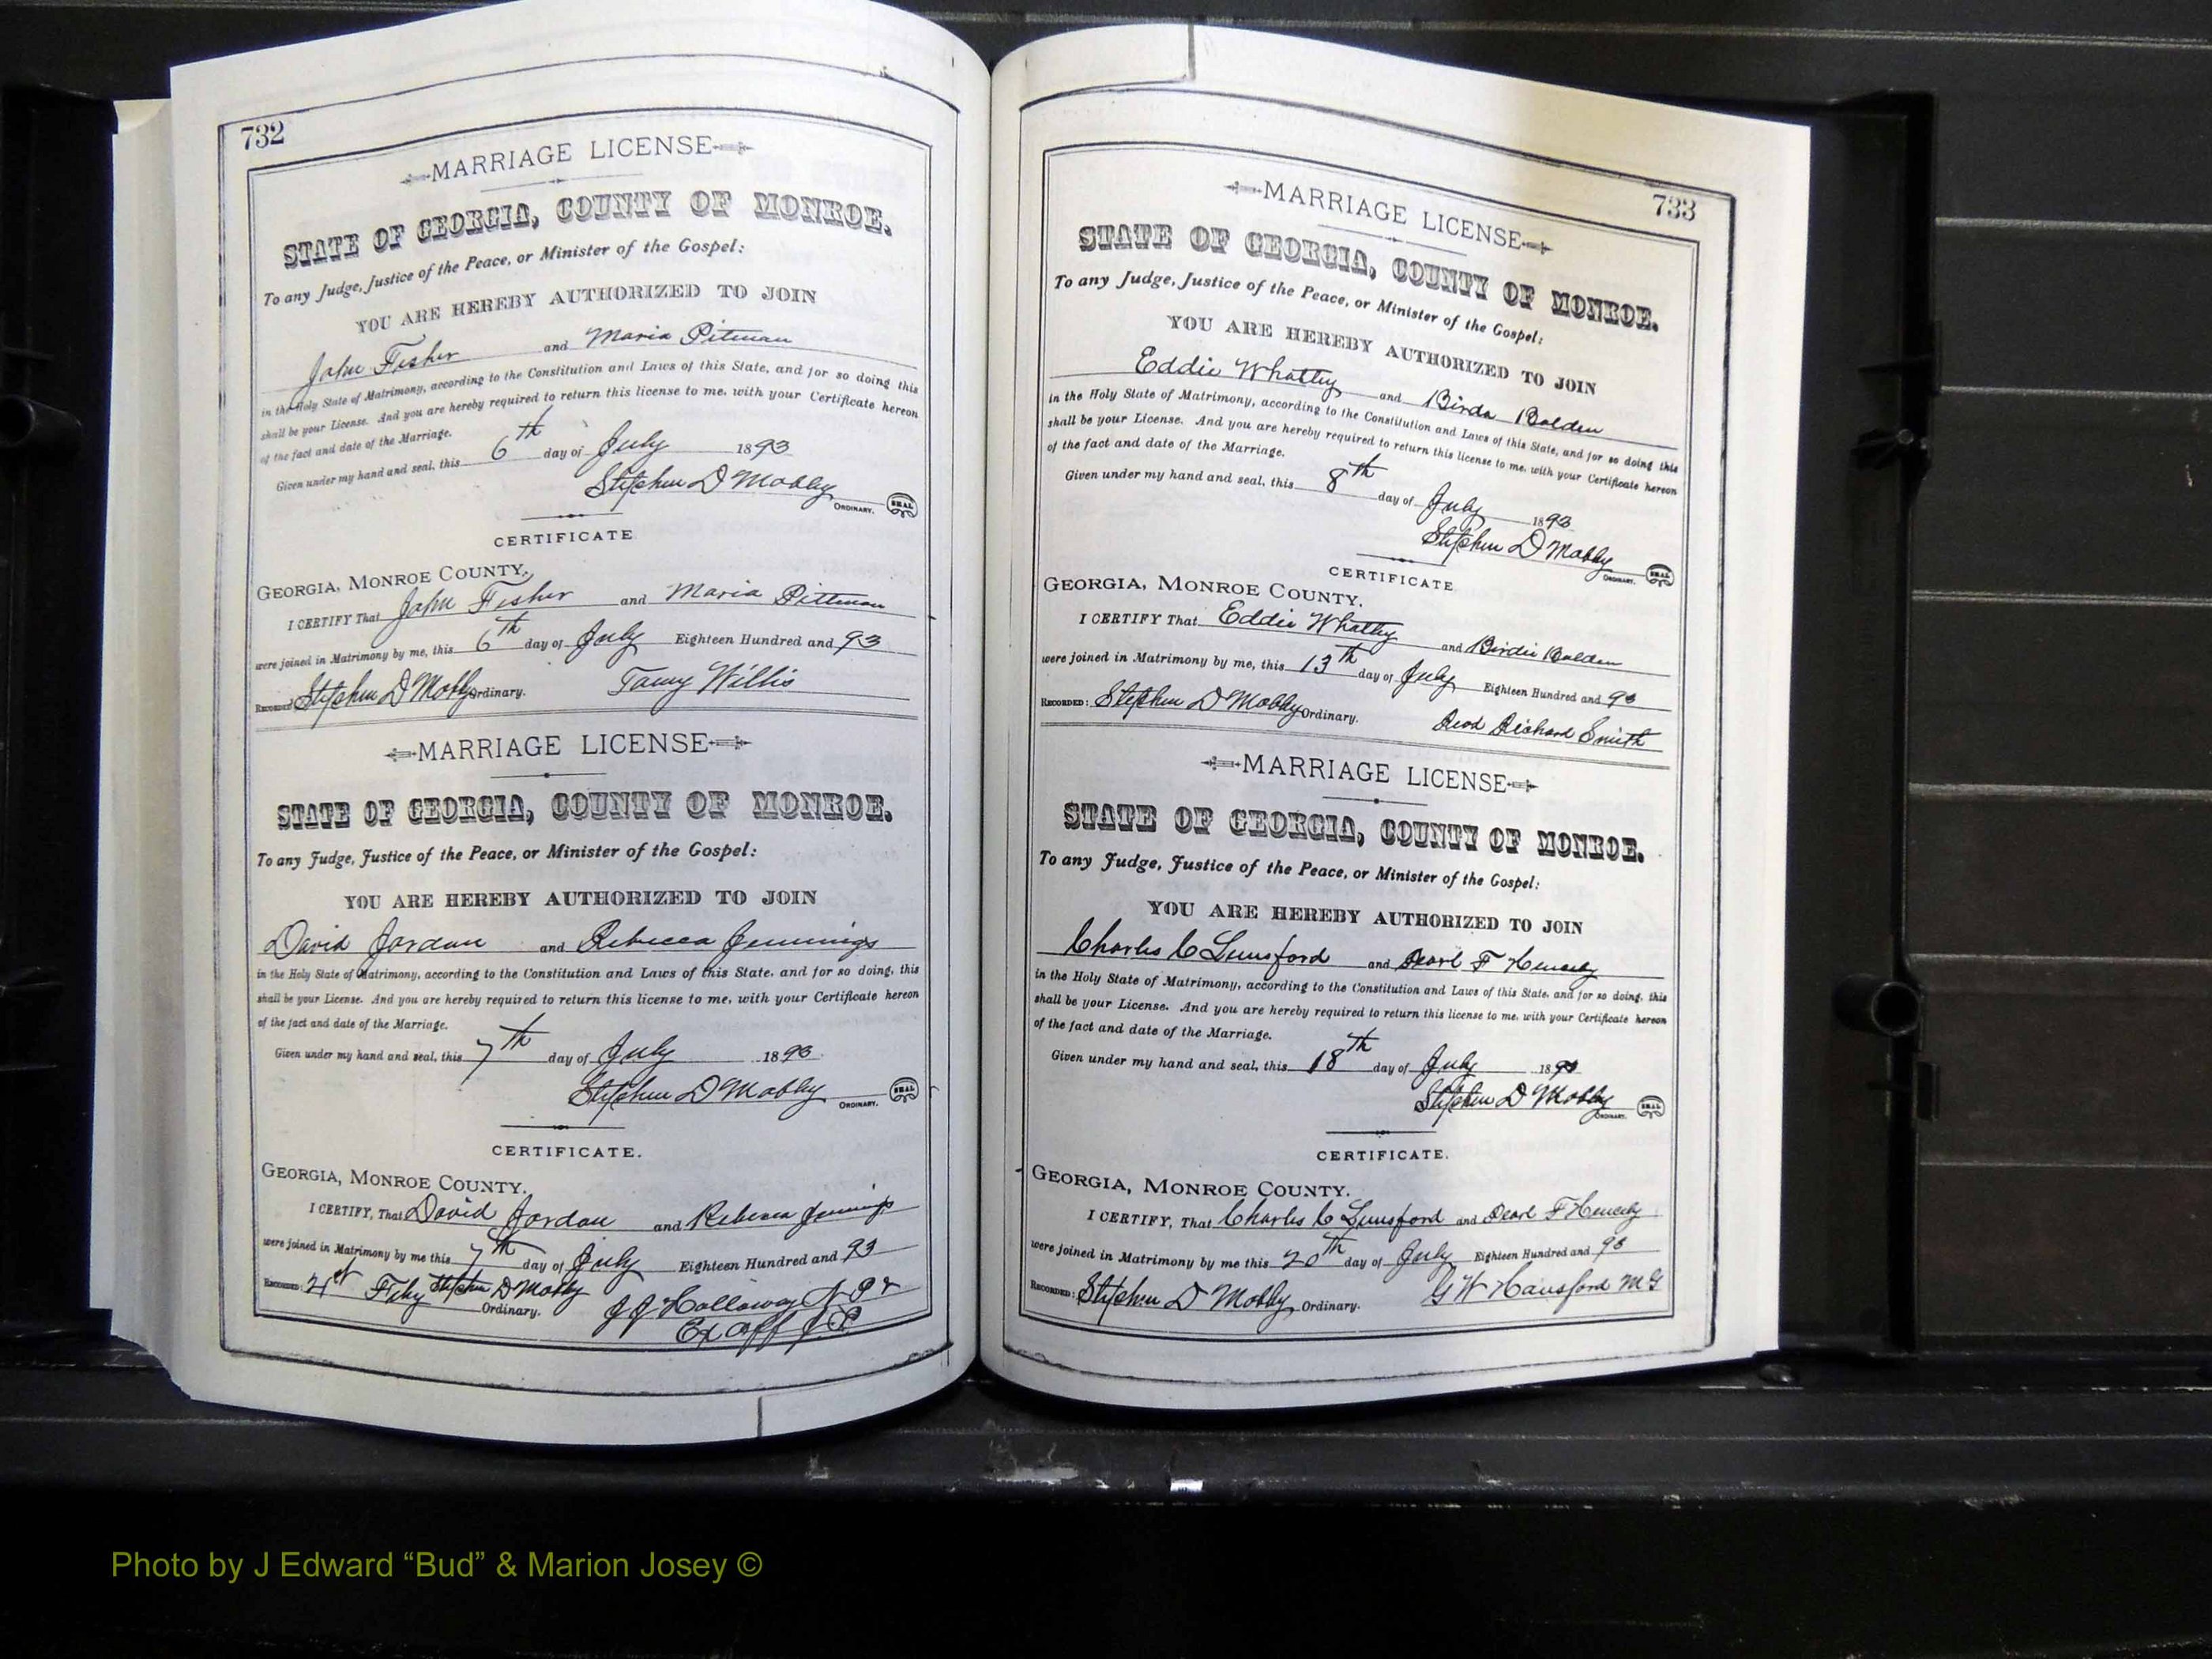 732
MARRIAGE LICENSE
STATE OF GEORGIA, COUNTY OF MONROE.
To any Judge, Justice of the Peace, or Minister of the Gospel:
YOU ARE HEREBY AUTHORIZED TO JOIN
John Fisher and Maria Pitman
in the Holy State of Matrimony, according to the Constitution and Laws of this State, and for so doing this
shall be your License. And you are hereby required to return this license to me, with your Certificate hereon
of the fact and date of the Marriage.
Given under my hand and seal, this 6th day of July 1893
Stephen D Mobly
ORDINARY. SEAL
CERTIFICATE
GEORGIA, MONROE COUNTY.
I CERTIFY That John Fisher and Maria Pittman
were joined in Matrimony by me, this 6th day of July Eighteen Hundred and 93
RECORDED: Stephen D Mobly Ordinary. Willis
MARRIAGE LICENSE
STATE OF GEORGIA, COUNTY OF MONROE.
To any Judge, Justice of the Peace, or Minister of the Gospel:
YOU ARE HEREBY AUTHORIZED TO JOIN
David Jordan and Rebecca Jennings
in the Holy State of Matrimony, according to the Constitution and Laws of this State, and for so doing, this
shall be your License. And you are hereby required to return this license to me, with your Certificate hereon
of the fact and date of the Marriage.
Given under my hand and seal, this 7th day of July 1893.
Stephen D Mobly
ORDINARY. SEAL
CERTIFICATE.
GEORGIA, MONROE COUNTY.
I CERTIFY, That David Jordan and Rebecca Jennings
were joined in Matrimony by me this 7th day of July Eighteen Hundred and 93
RECORDED: Stephen D Mobly Ordinary. J J Holloway N P &
Ex off J. P.
733
MARRIAGE LICENSE
STATE OF GEORGIA, COUNTY OF MONROE.
To any Judge, Justice of the Peace, or Minister of the Gospel:
YOU ARE HEREBY AUTHORIZED TO JOIN
Eddie Whatley and Birda Bolden
in the Holy State of Matrimony, according to the Constitution and Laws of this State, and for so doing this
shall be your License. And you are hereby required to return this license to me, with your Certificate hereon
of the fact and date of the Marriage.
Given under my hand and seal, this 8th day of July 1893
Stephen D Mobly
ORDINARY. SEAL
CERTIFICATE
GEORGIA, MONROE COUNTY.
I CERTIFY That Eddie Whatley and Birdie Bolden
were joined in Matrimony by me, this 13th day of July Eighteen Hundred and 93
RECORDED: Stephen D Mobly Ordinary. Richard Smith
MARRIAGE LICENSE
STATE OF GEORGIA, COUNTY OF MONROE.
To any Judge, Justice of the Peace, or Minister of the Gospel:
YOU ARE HEREBY AUTHORIZED TO JOIN
Charles C Lunsford and Pearl F
in the Holy State of Matrimony, according to the Constitution and Laws of this State, and for so doing, this
shall be your License. And you are hereby required to return this license to me, with your Certificate hereon
of the fact and date of the Marriage.
Given under my hand and seal, this 18th day of July 1893
Stephen D Mobly
ORDINARY. SEAL
CERTIFICATE.
GEORGIA, MONROE COUNTY.
I CERTIFY, That Charles C Lunsford and Pearl F
were joined in Matrimony by me this 20th day of July Eighteen Hundred and 93
RECORDED: Stephen D Mobly, Ordinary. G W Hansford M G
Photo by J Edward “Bud” & Marion Josey ©